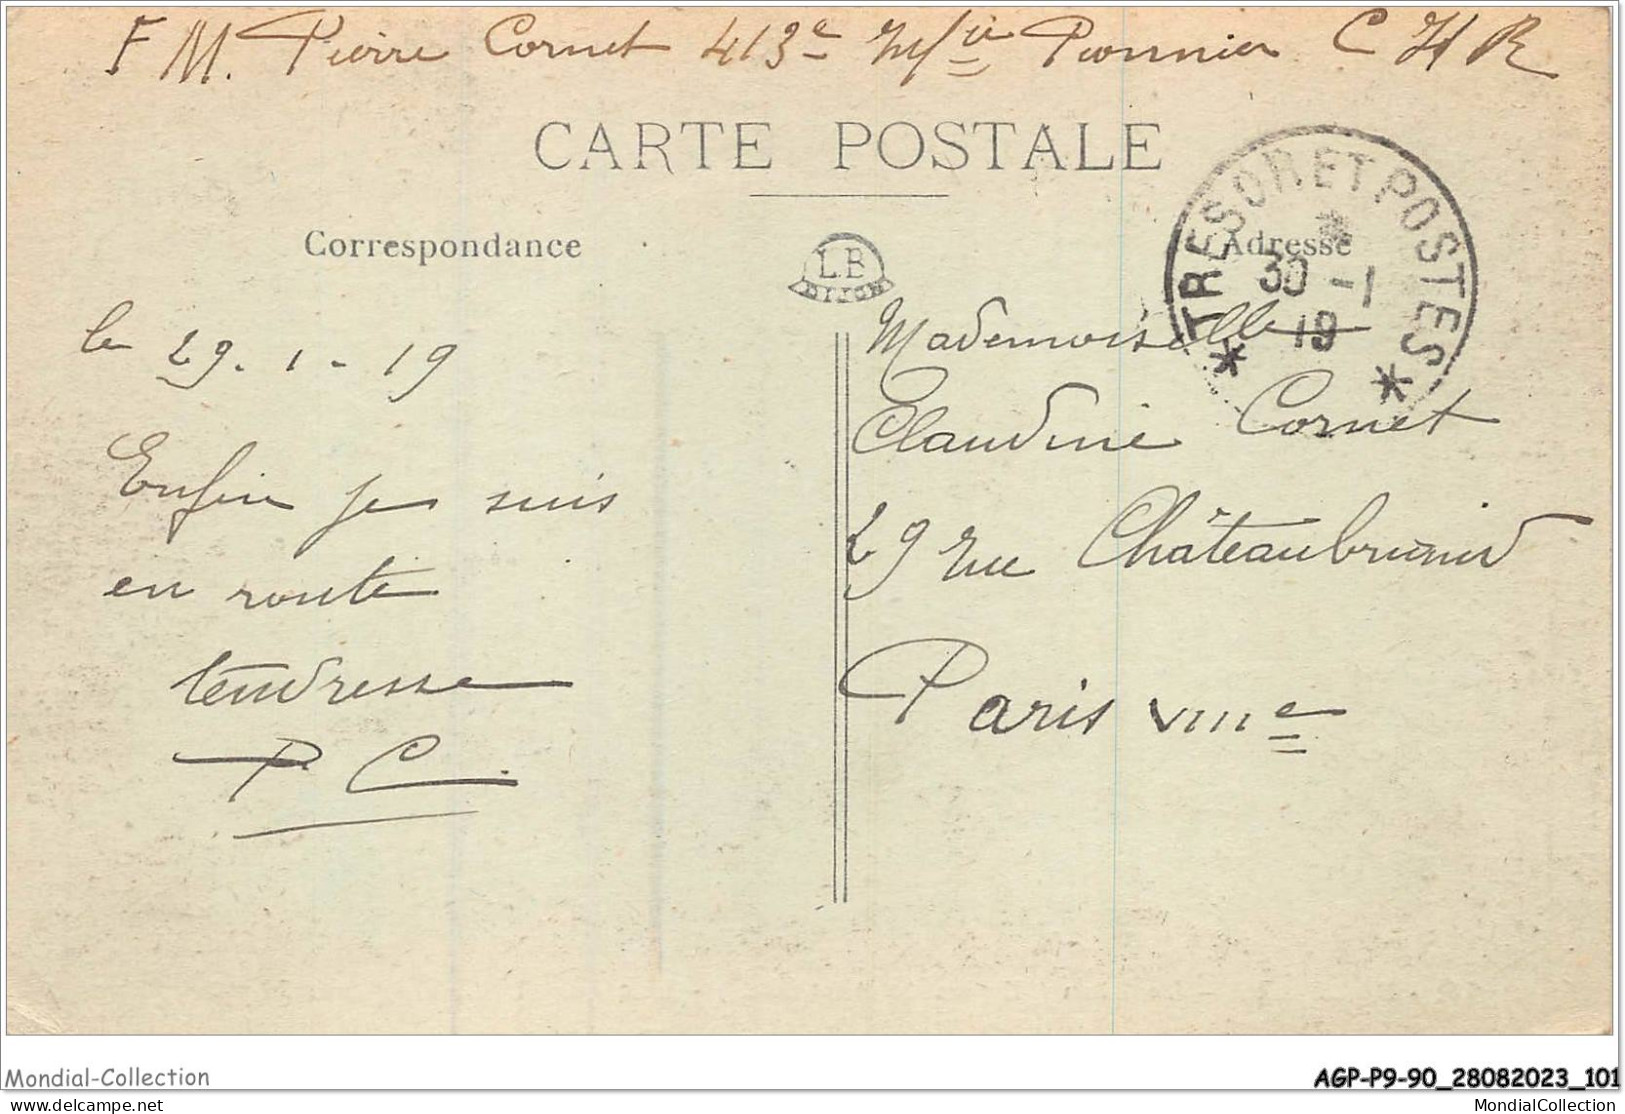 F M. Pierre Cornet 413e Inf ie Pionnier C H R
CARTE POSTALE
Correspondance
LB
DIJON
Adresse
* TRESOR ET POSTES *
30 -1
19
le 29. 1 - 19
Enfin je suis
en route
tendresse
P. C.
Mademoiselle
Claudine Cornet
29 rue Châteaubriand
Paris VIIIe
Mondial-Collection
AGP-P9-90_28082023_101
www.delcampe.net
MondialCollection